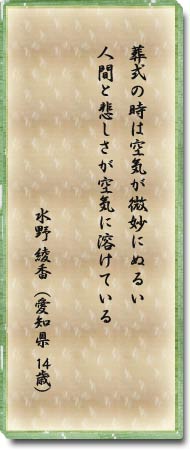 葬式の時は空気が微妙にぬるい
人間と悲しさが空気に溶けている
水野 綾香 (愛知県 14歳)